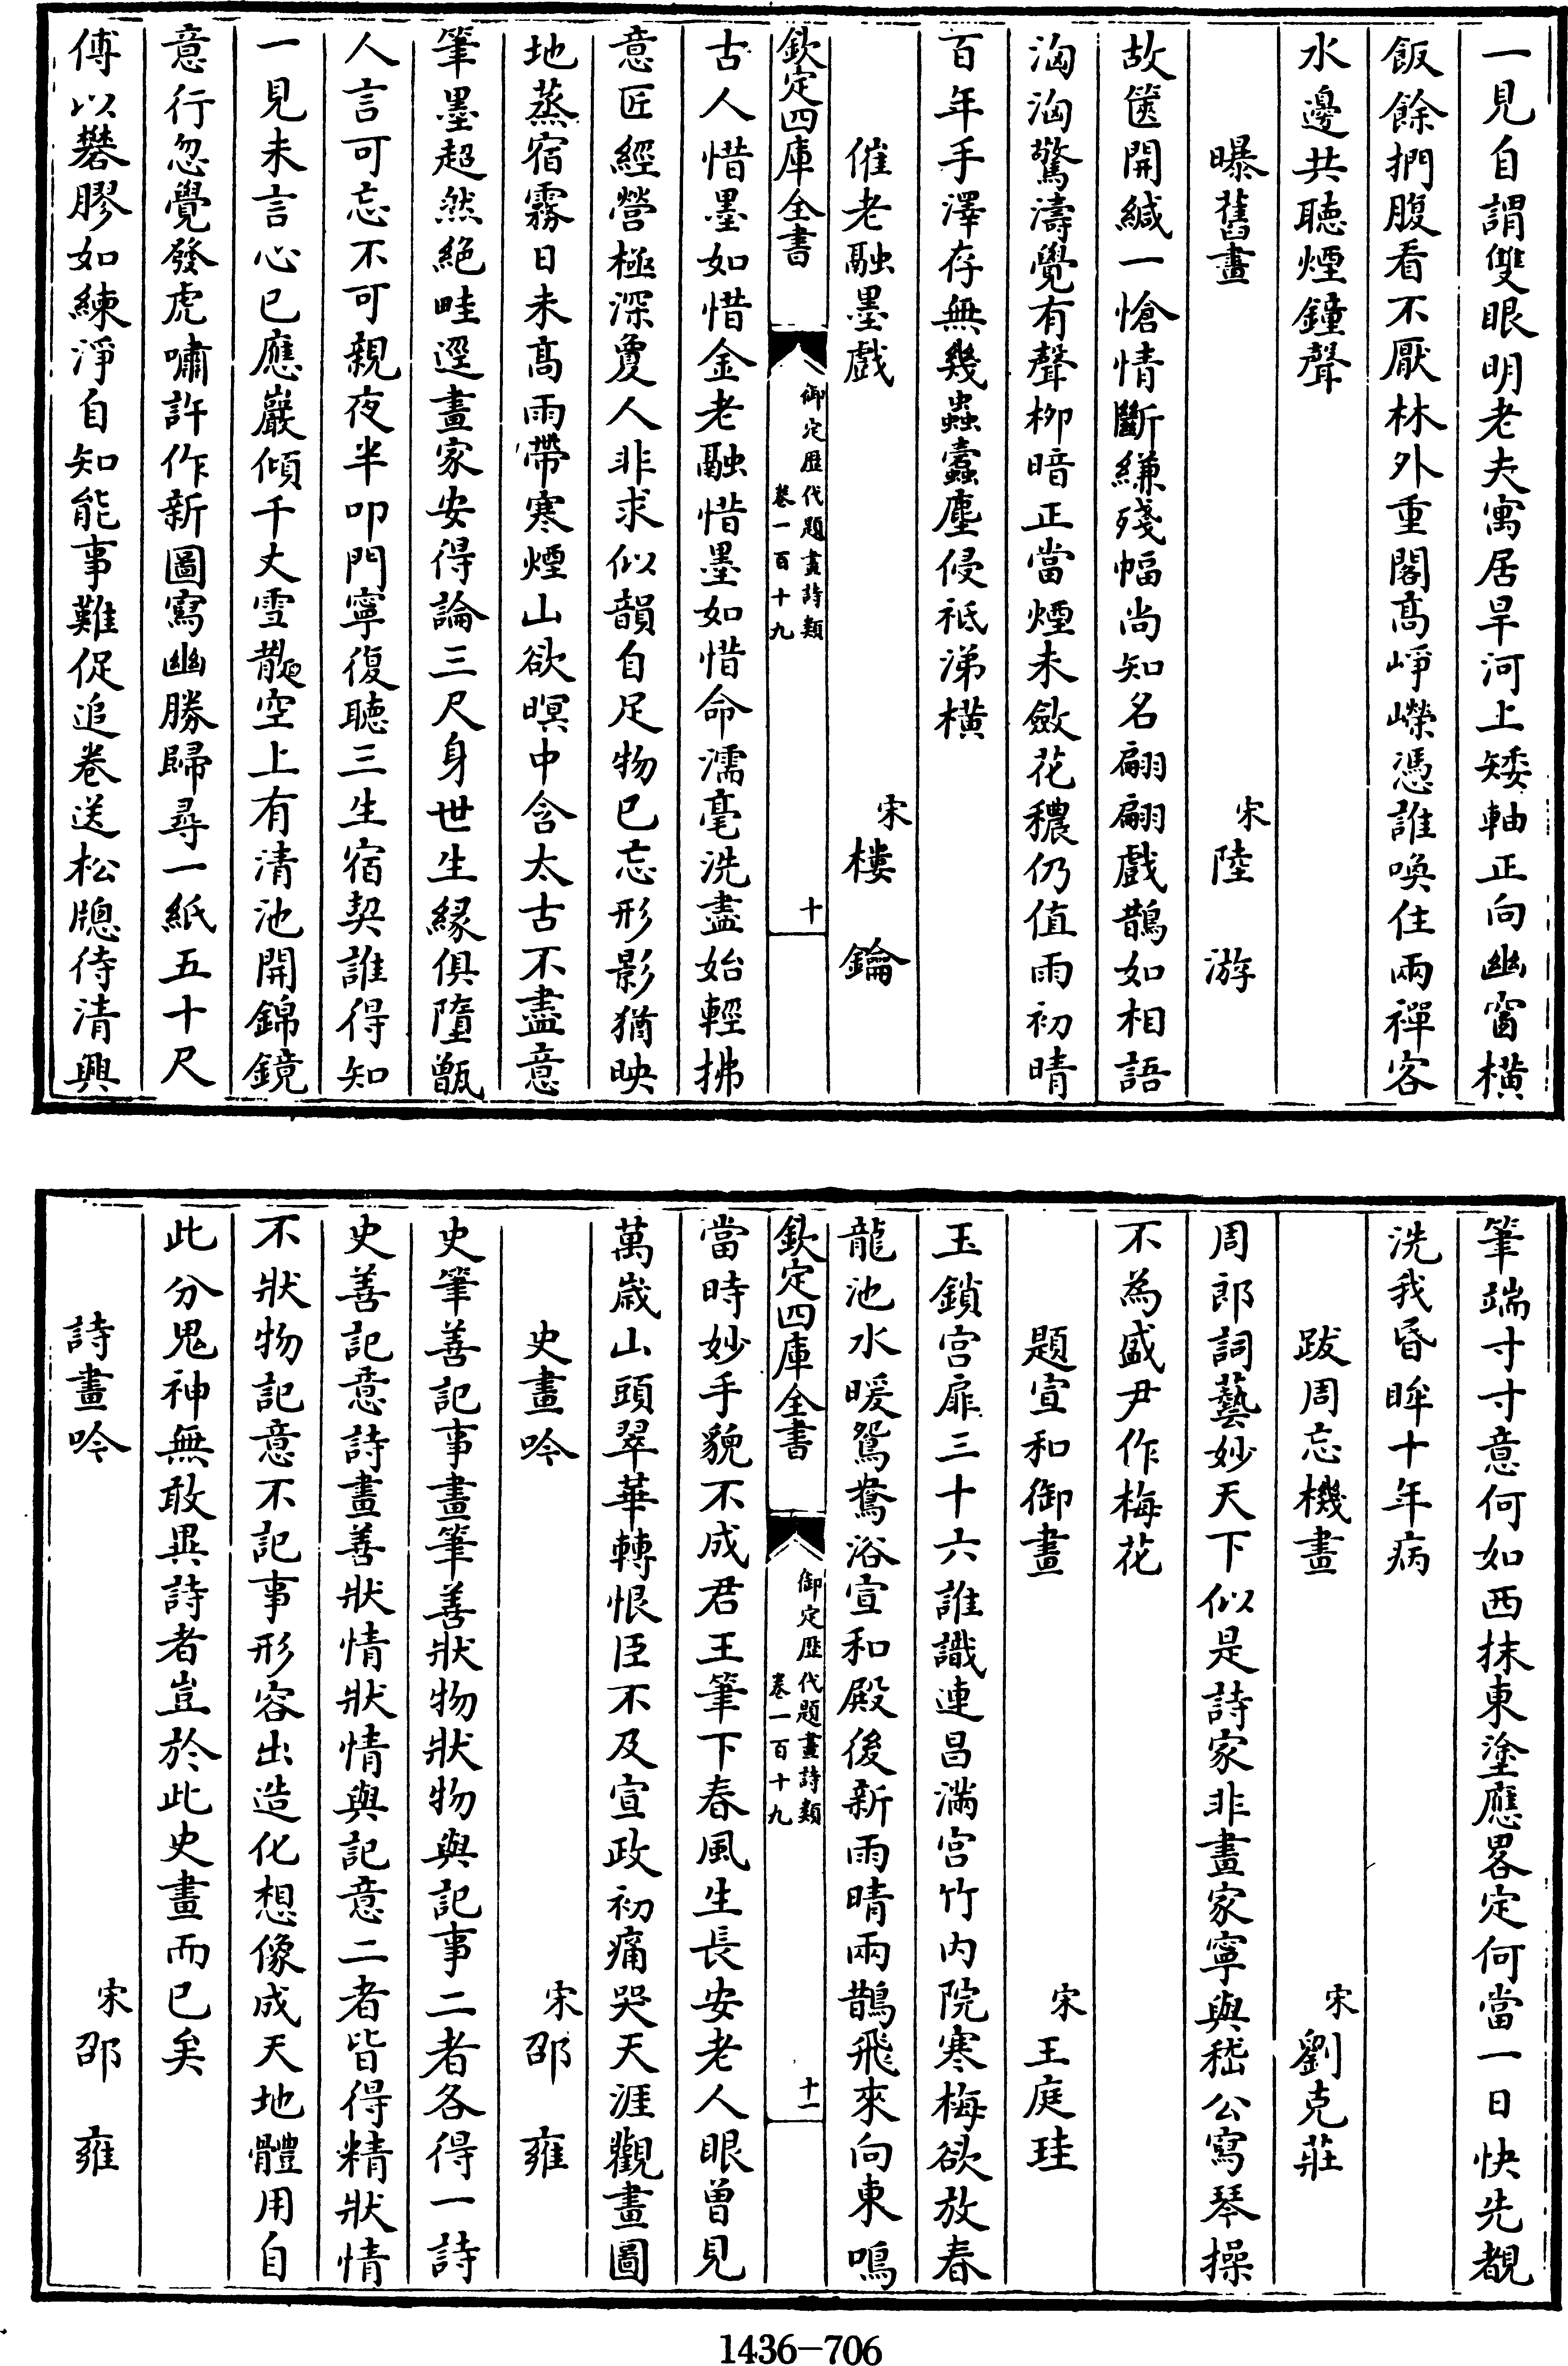 一見自謂雙眼明老夫寓居旱河上矮軸正向幽窗橫
飯餘捫腹看不厭林外重閣髙崢嶸憑誰喚住兩禪客
水邊共聽煙鐘聲
曝舊畫 宋陸游
故篋開緘一愴情斷縑殘幅尚知名翩翩戲鵲如相語
洶洶驚濤覺有聲栁暗正當煙未斂花穠仍值雨初晴
百年手澤存無幾蟲蠹塵侵祗涕橫
催老融墨戲 宋樓鑰
欽定四庫全書 御定歴代題畫詩類 卷一百十九 十
古人惜墨如惜金老融惜墨如惜命濡毫洗盡始輕拂
意匠經營極深夐人非求似韻自足物已忘形影猶映
地蒸宿霧日未髙雨帶寒煙山欲暝中含太古不盡意
筆墨超然絶畦逕畫家安得論三尺身世生縁俱墮甑
人言可忘不可親夜半叩門寧復聽三生宿契誰得知
一見未言心已應巖傾千丈雪散空上有清池開錦鏡
意行忽覺發虎嘯許作新圖寫幽勝歸尋一紙五十尺
傅以礬膠如練淨自知能事難促追卷送松牕待清興
筆端寸寸意何如西抹東塗應畧定何當一日快先覩
洗我昏眸十年病
跋周忘機畫 宋劉克莊
周郎詞藝妙天下似是詩家非畫家寧與嵇公寫琴操
不為盛尹作梅花
題宣和御畫 宋王庭珪
玉鎖宫扉三十六誰識連昌滿宫竹内院寒梅欲放春
龍池水暖鴛鴦浴宣和殿後新雨晴兩鵲飛來向東鳴
欽定四庫全書 御定歴代題畫詩類 卷一百十九 十一
當時妙手貌不成君王筆下春風生長安老人眼曽見
萬歳山頭翠華轉恨臣不及宣政初痛哭天涯觀畫圖
史畫吟 宋邵雍
史筆善記事畫筆善狀物狀物與記事二者各得一詩
史善記意詩畫善狀情狀情與記意二者皆得精狀情
不狀物記意不記事形容出造化想像成天地體用自
此分鬼神無敢異詩者豈於此史畫而已矣
詩畫吟 宋邵雍
1436-706